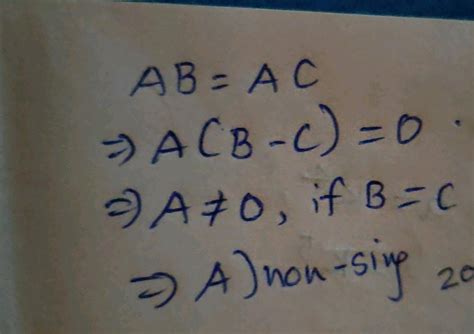 AB = AC
⇒ A(B-C) = 0 .
⇒ A ≠ 0, if B = C
⇒ A) non-sing 20